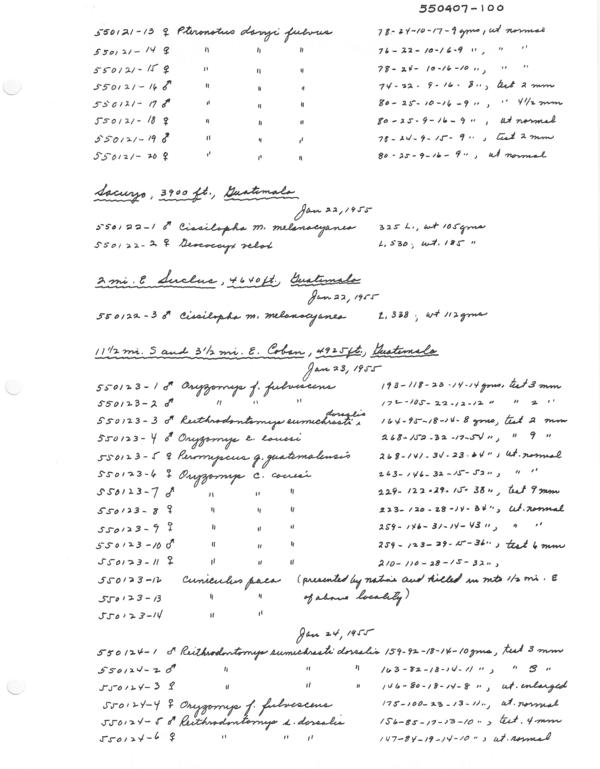 550407-100
550121-13 ♀ Pteronotus davyi fulvus 78-24-10-17-9 gms, ut normal
550121-14 ♀ " " " 76-22-10-16-9 ", " "
550121-15 ♀ " " " 78-24-10-16-10 ", " "
550121-16 ♂ " " " 74-22-9-16-8 ", test 2 mm
550121-17 ♂ " " " 80-25-10-16-9 ", " 4½ mm
550121-18 ♀ " " " 80-25-9-16-9 ", ut normal
550121-19 ♂ " " " 78-24-9-15-9 ", test 2 mm
550121-20 ♀ " " " 80-25-9-16-9 ", ut normal
3900 ft., Guatemala
Jan 22, 1955
550122-1 ♂ Cissilopha m. melanocyanea 325 L., wt 105 gms
550122-2 ♀ Geococcyx velox L. 530, wt. 185 "
2 mi. E 4640 ft., Guatemala
Jan 22, 1955
550122-3 ♂ Cissilopha m. melanocyanea L. 338, wt 112 gms
11½ mi. S and 3½ mi. E. Coban, 4925 ft., Guatemala
Jan 23, 1955
550123-1 ♂ Oryzomys f. fulvescens 193-118-23-14-14 gms, test 3 mm
550123-2 ♂ " " " 172-105-22-12-12 " " 2 "
550123-3 ♂ Reithrodontomys sumichrasti dorsalis 164-95-18-14-8 gms, test 2 mm
550123-4 ♂ Oryzomys c. couesi 268-152-32-17-54 ", " 9 "
550123-5 ♀ Peromyscus g. guatemalensis 268-141-34-23-64 ", ut. normal
550123-6 ♀ Oryzomys c. couesi 263-146-32-15-52 ", " "
550123-7 ♂ " " " 229-122-29-15-38 ", test 9 mm
550123-8 ♀ " " " 223-120-28-14-34 ", ut. normal
550123-9 ♀ " " " 259-146-31-14-43 ", " "
550123-10 ♂ " " " 239-123-29-15-36 ", test 6 mm
550123-11 ♀ " " " 210-110-28-15-32 ",
550123-12 Cuniculus paca (presented by natives and killed in mts 1½ mi. E
550123-13 " " of above locality)
550123-14 " "
Jan 24, 1955
550124-1 ♂ Reithrodontomys sumichrasti dorsalis 159-92-18-14-10 gms, test 3 mm
550124-2 ♂ " " " 163-82-18-14-11 ", " 3 "
550124-3 ♀ " " " 146-80-18-14-8 ", ut. enlarged
550124-4 ♀ Oryzomys f. fulvescens 175-100-23-13-11 ", ut. normal
550124-5 ♂ Reithrodontomys s. dorsalis 156-85-17-13-10 ", test. 4 mm
550124-6 ♀ " " " 147-84-19-14-10 ", ut. normal